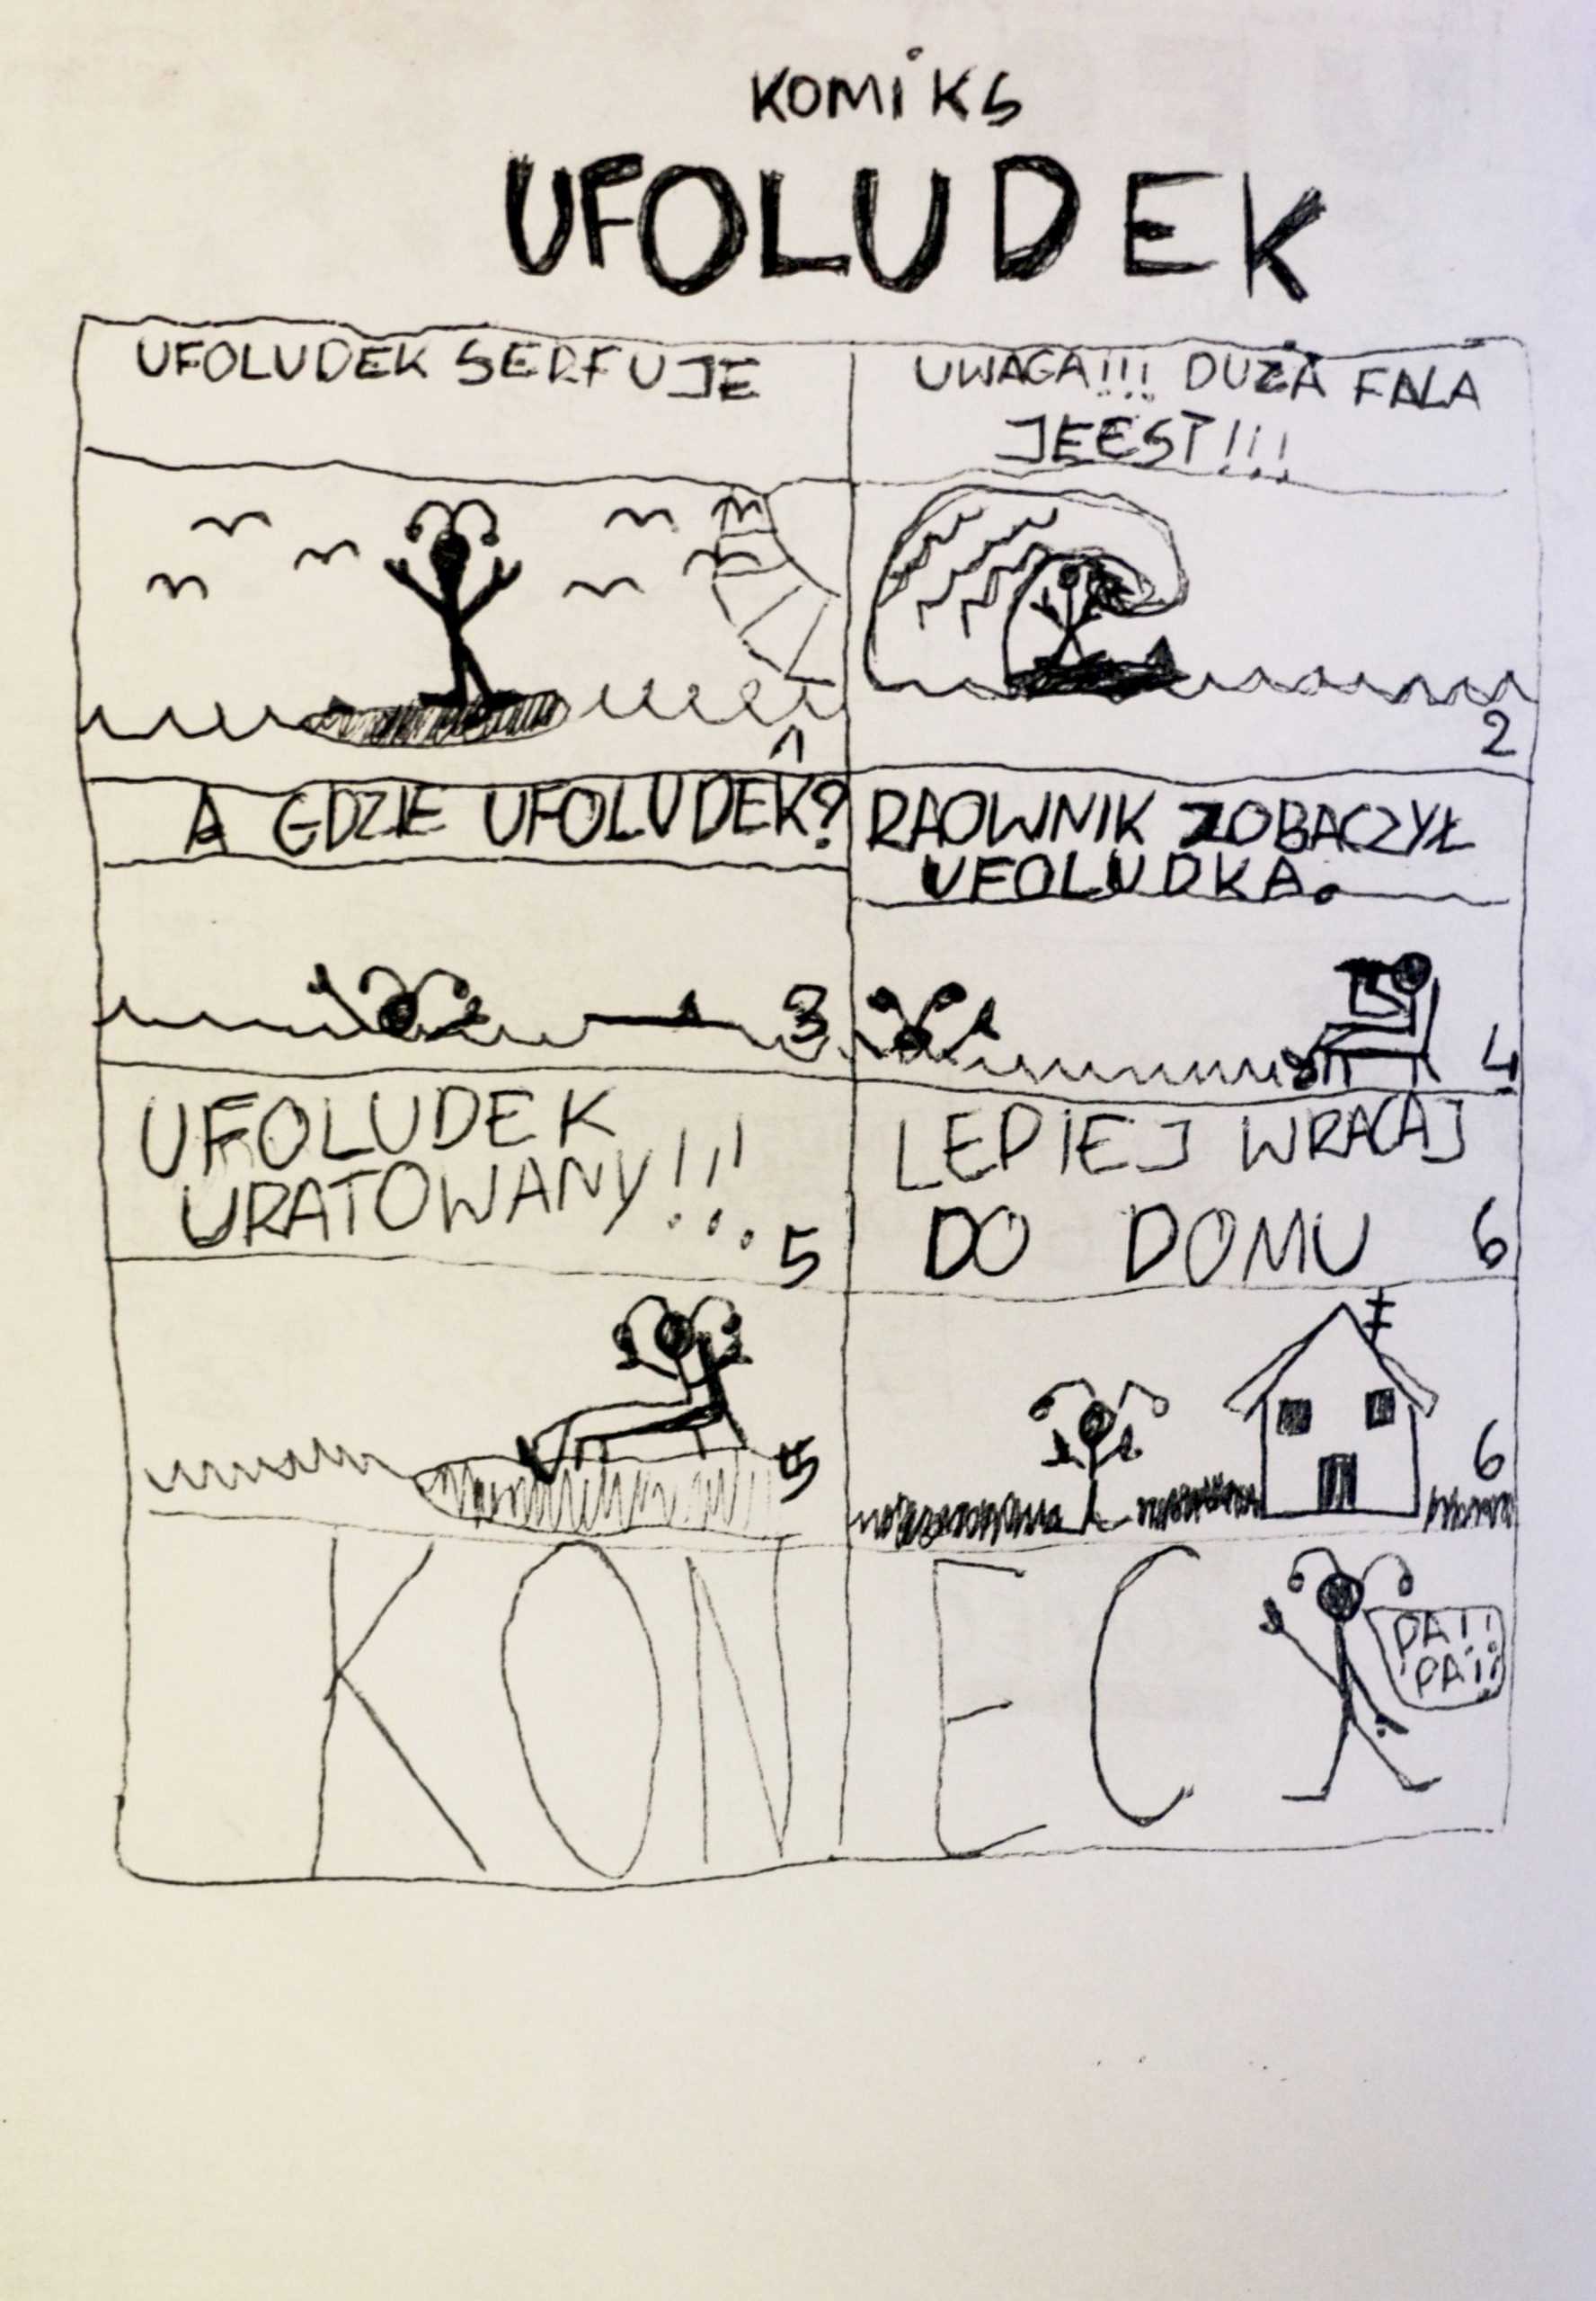 KOMiKS
UFOLUDEK
UFOLUDEK SERFUJE
1
UWAGA!!! DUŻA FALA
JEEST!!!
2
A GDZIE UFOLUDEK?
3
RAOWNIK ZOBACZYŁ
UFOLUDKA.
4
UFOLUDEK
URATOWANY!!!
5
5
LEPIEJ WRACAJ
DO DOMU 6
6
KONIEC
PA!!
PA!!